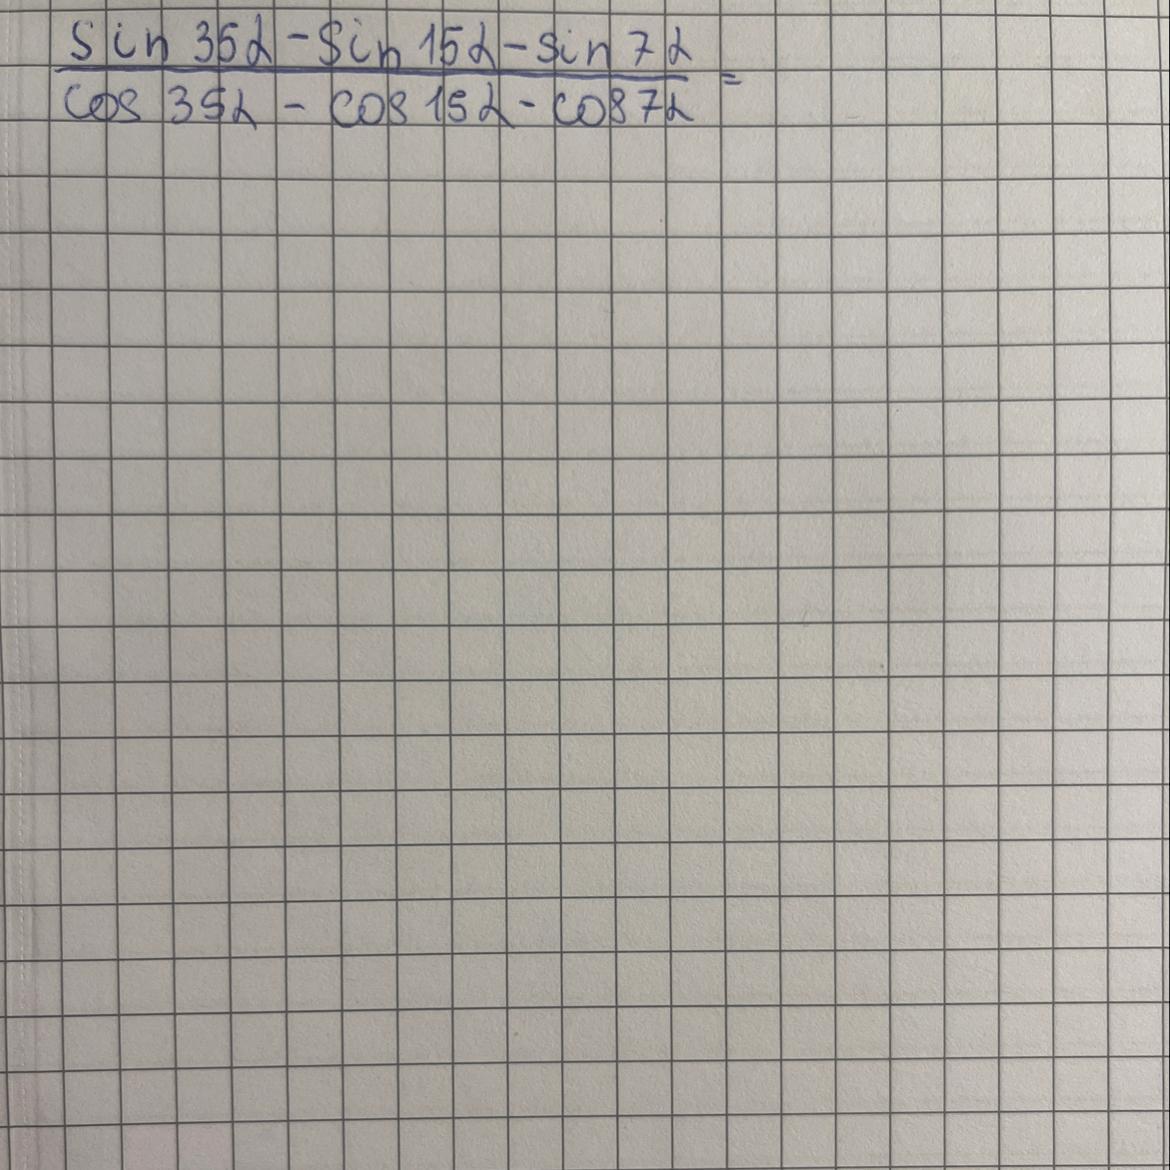 sin 35α - sin 15α - sin 7α
cos 35α - cos 15α - cos 7α =